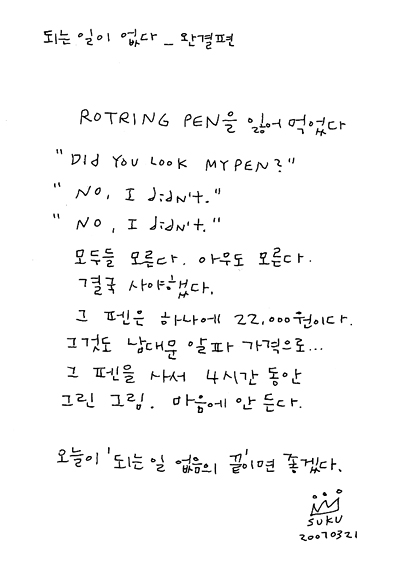 되는 일이 없다 _ 완결편
ROTRING PEN을 잃어 먹었다
"DID YOU LOOK MY PEN?"
"NO, I didN't."
"NO, I didN't."
모두들 모른다. 아무도 모른다.
결국 사야했다.
그 펜은 하나에 22,000원이다.
그것도 남대문 알파 가격으로...
그 펜을 사서 4시간 동안
그린 그림. 마음에 안 든다.
오늘이 '되는 일 없음의 끝'이면 좋겠다.
SUKU
20070321